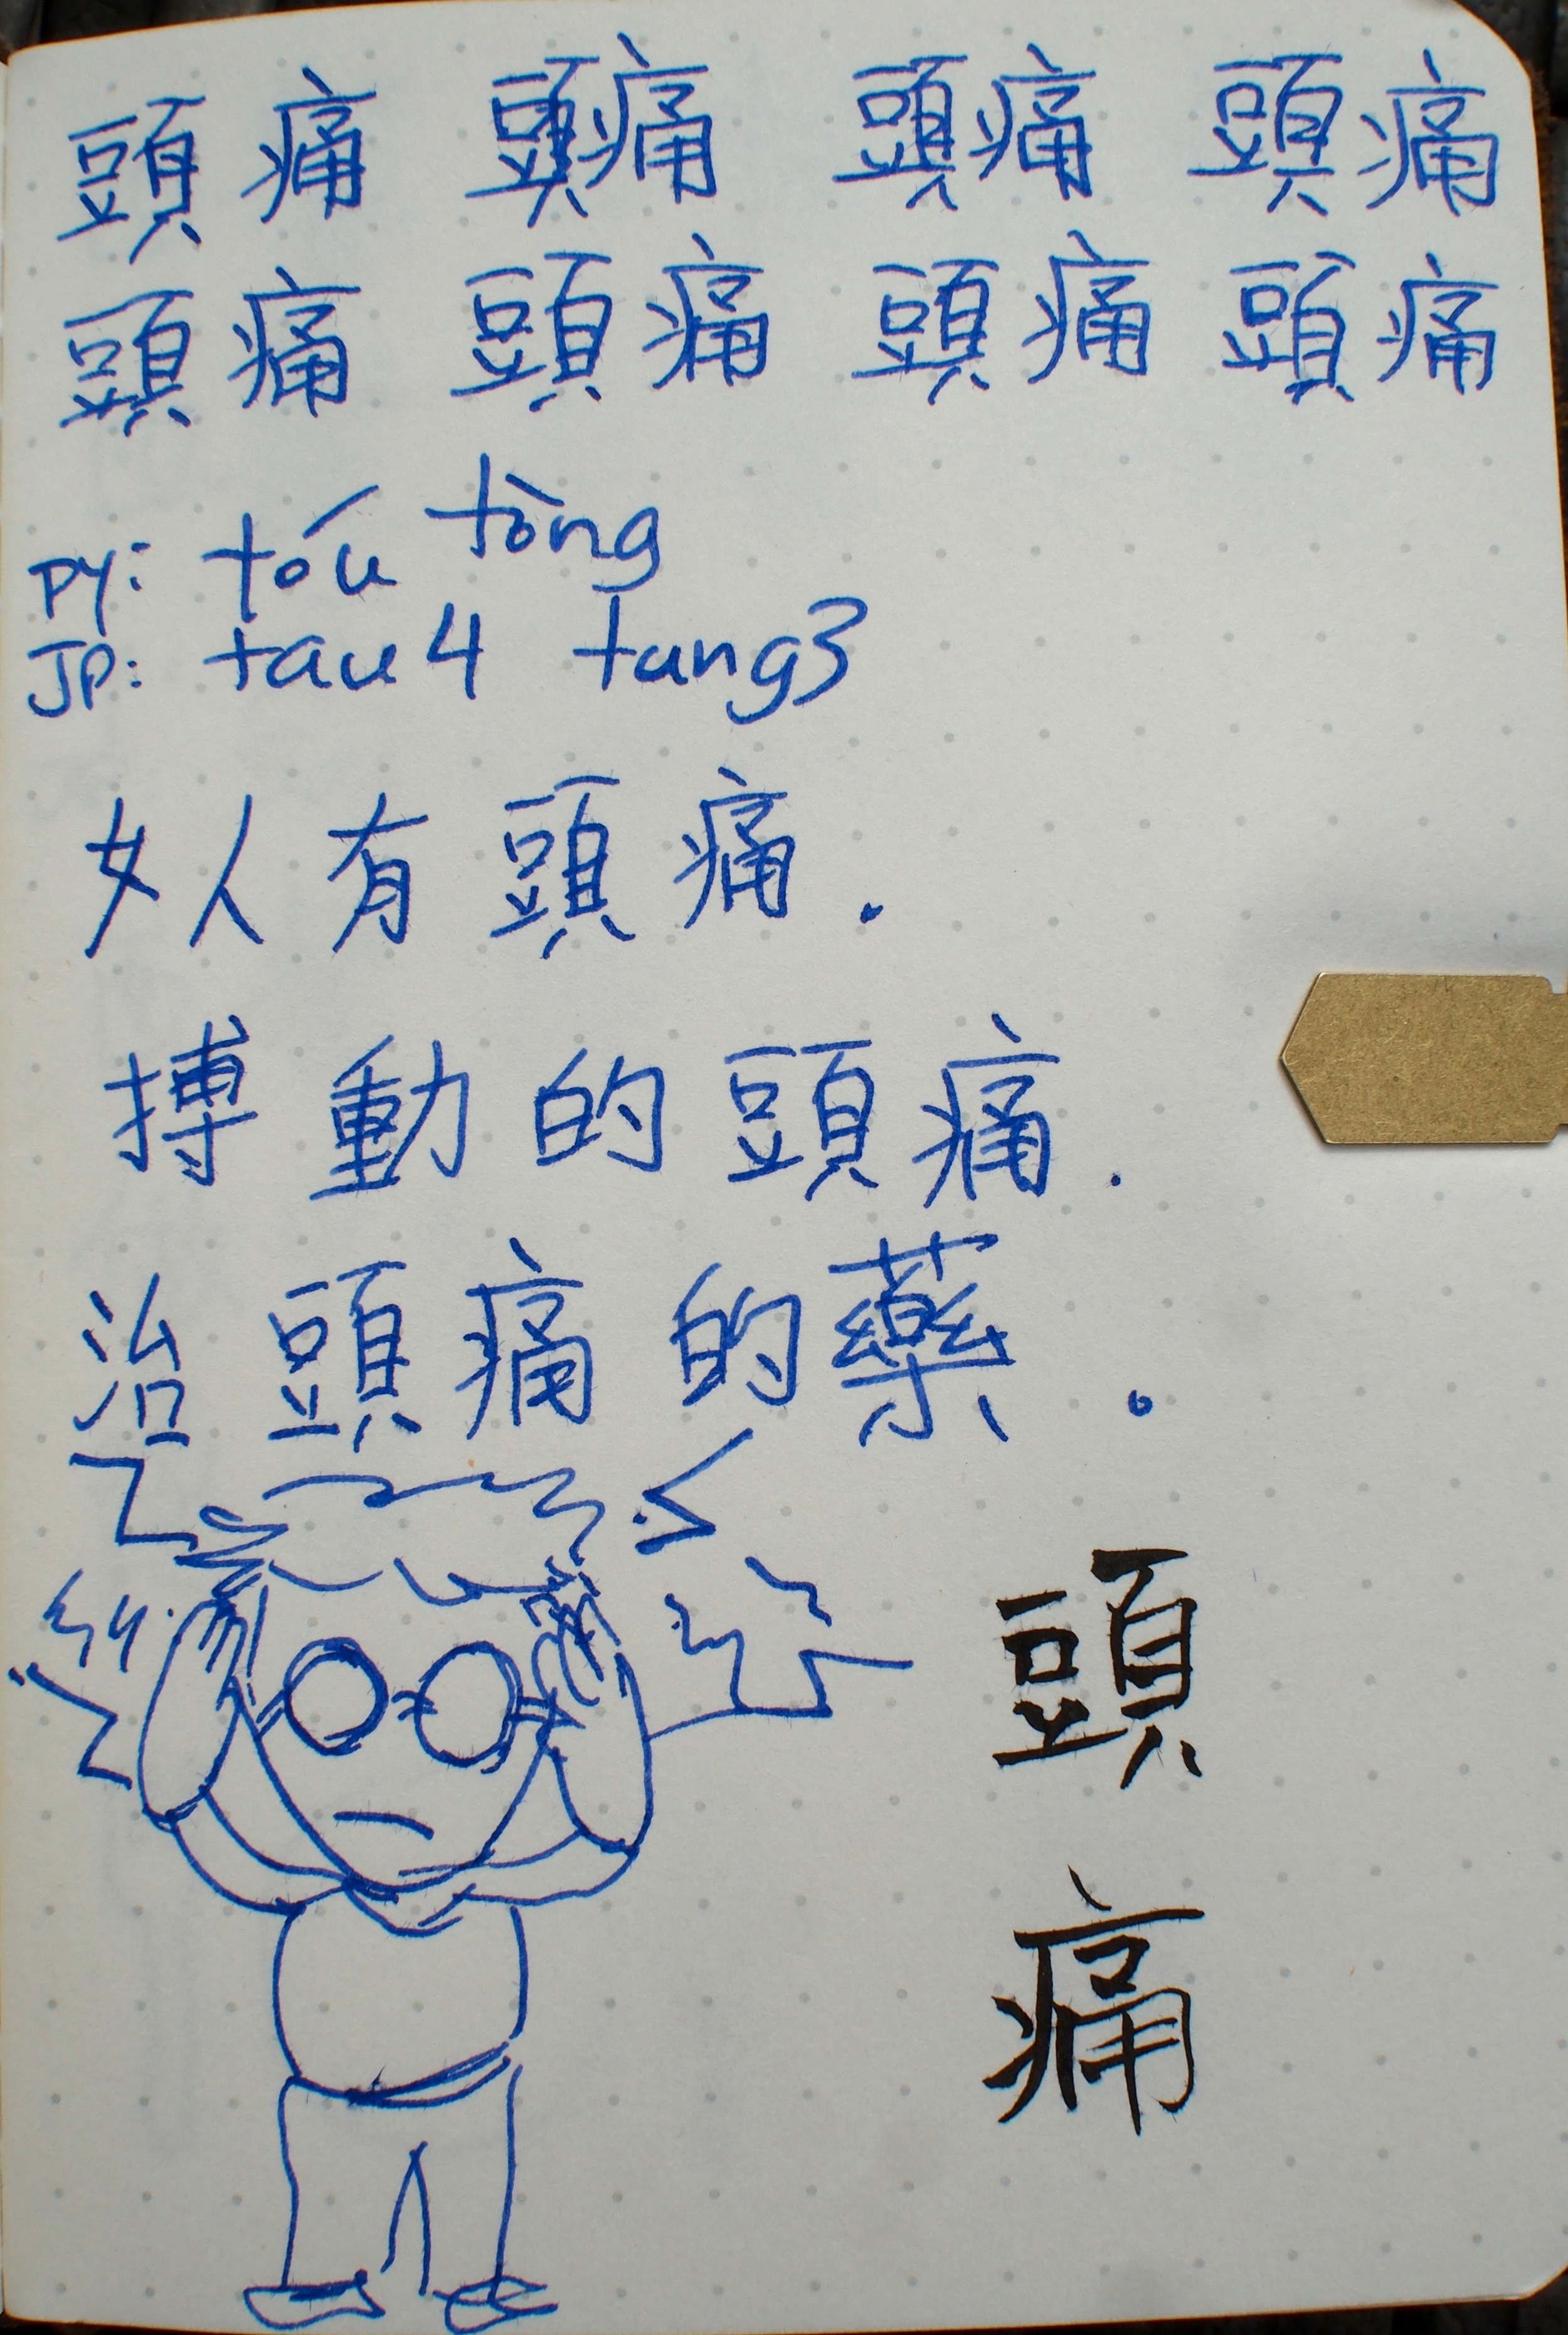 頭痛 頭痛 頭痛 頭痛
頭痛 頭痛 頭痛 頭痛
PY: tóu tòng
JP: tau4 tung3
女人有頭痛.
搏動的頭痛.
治頭痛的藥。
頭
痛